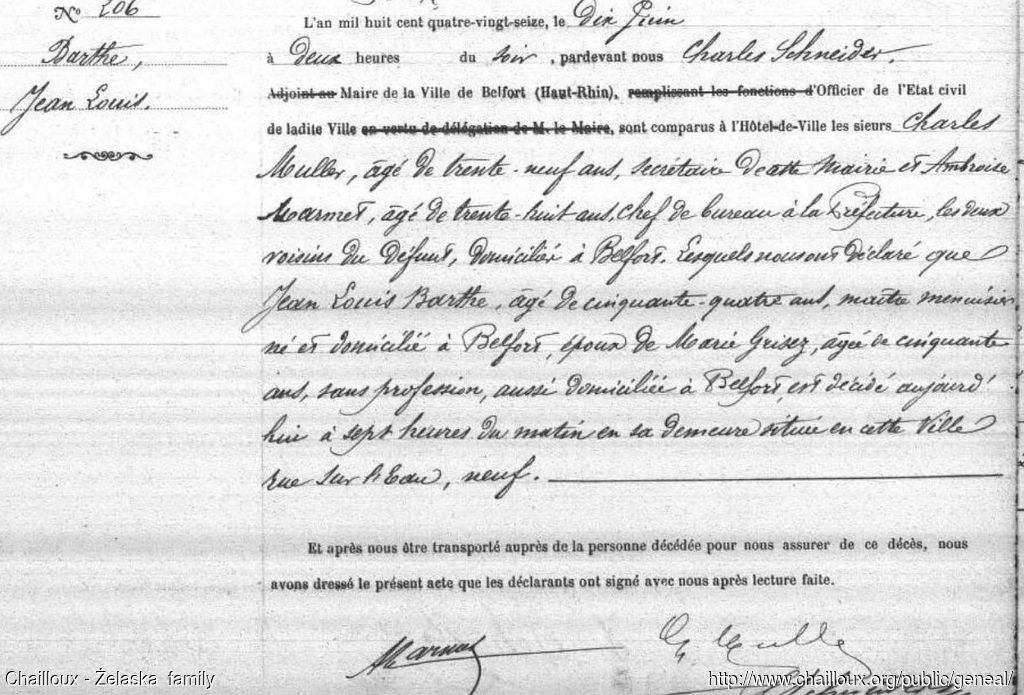 No 206
Barthe,
Jean Louis.
L'an mil huit cent quatre-vingt-seize, le dix Juin
à deux heures du soir, pardevant nous Charles Schneider.
Adjoint au Maire de la Ville de Belfort (Haut-Rhin), remplissant les fonctions d'Officier de l'Etat civil
de ladite Ville en vertu de délégation de M. le Maire, sont comparus à l'Hôtel-de-Ville les sieurs Charles
Muller, âgé de trente-neuf ans, secrétaire de cette Mairie et Ambroise
Marmet, âgé de trente-huit ans, chef de bureau à la Préfecture, les deux
voisins du défunt, domiciliés à Belfort. Lesquels nous ont déclaré que
Jean Louis Barthe, âgé de cinquante-quatre ans, maître menuisier
né et domicilié à Belfort, époux de Marie Grisez, âgée de cinquante
ans, sans profession, aussi domiciliée à Belfort, est décédé aujourd'
hui à sept heures du matin en sa demeure située en cette Ville
rue sur l'Eau, neuf.
Et après nous être transporté auprès de la personne décédée pour nous assurer de ce décès, nous
avons dressé le présent acte que les déclarants ont signé avec nous après lecture faite.
AMarmet Ch Muller
Chailloux - Żelaska family http://www.chailloux.org/public/geneal/